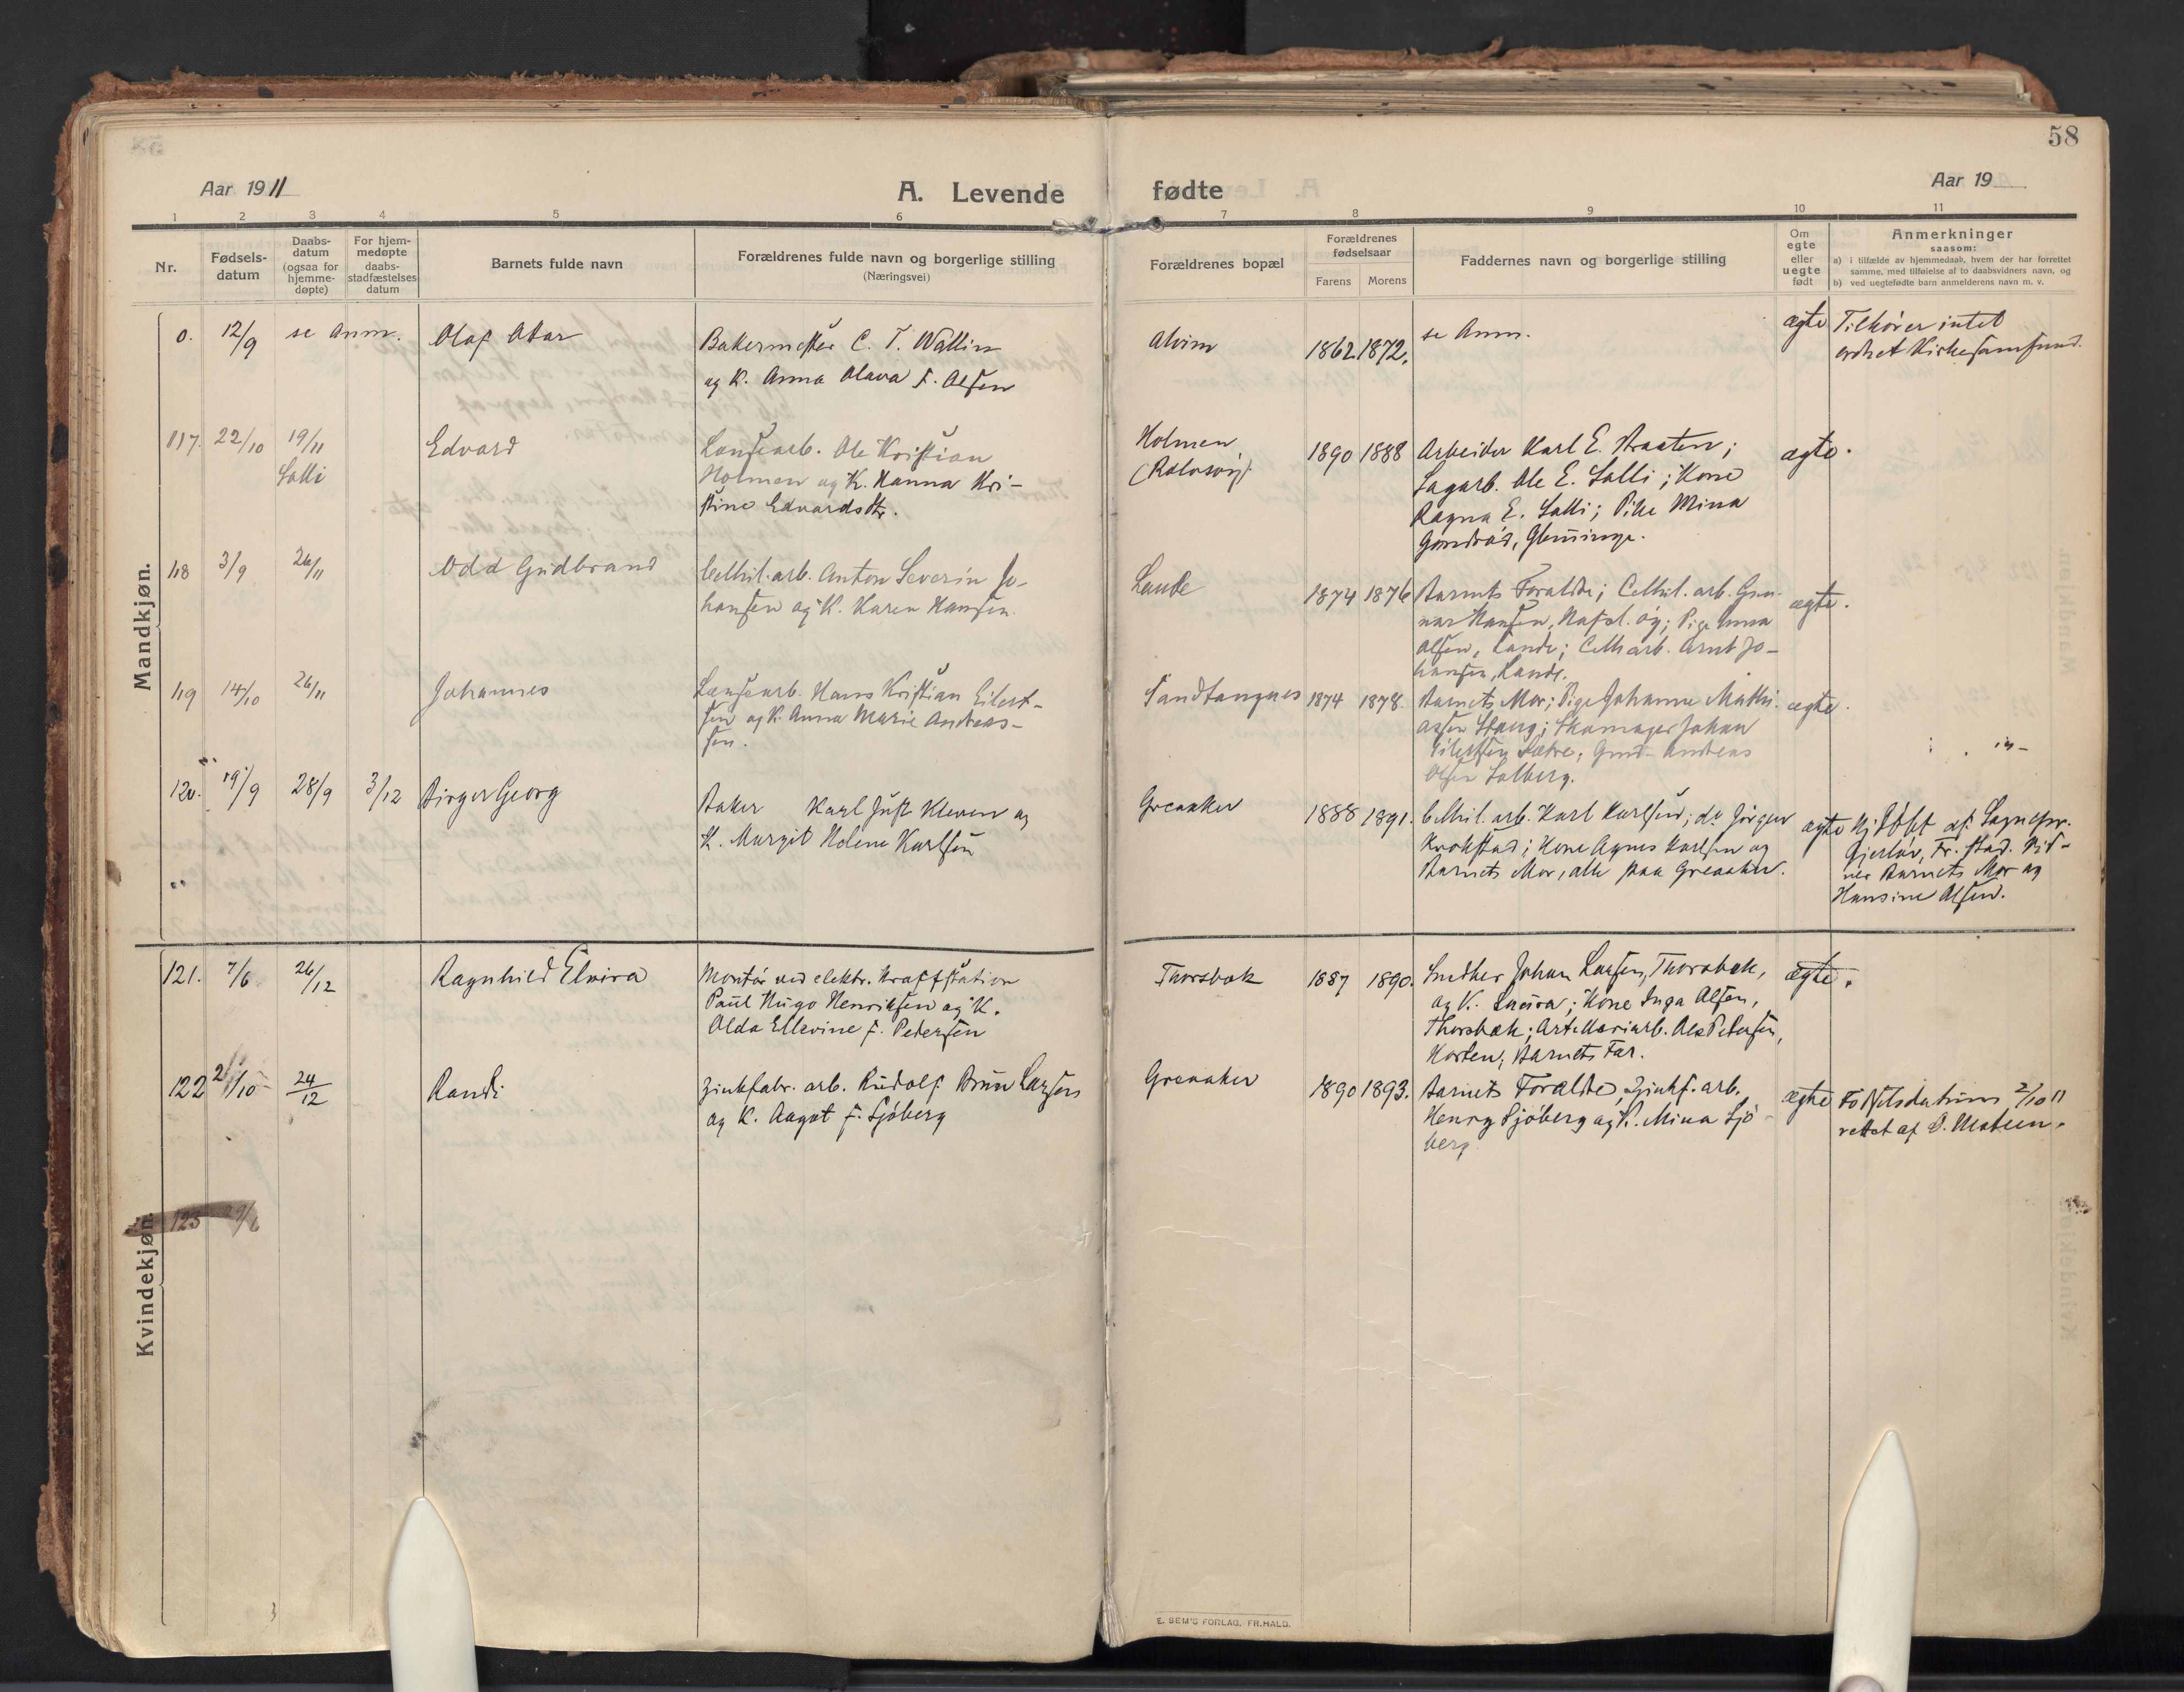 58
Aar 1911
A. Levende fødte
Aar 19
1 2 3 4 5 6 7 8 9 10 11
Nr.
Fødsels-
datum
Daabs-
datum
(ogsaa for
hjemme-
døpte)
For hjem-
medøpte
daabs-
stadfæstelses
datum
Barnets fulde navn
Forældrenes fulde navn og borgerlige stilling
(Næringsvei)
Forældrenes bopæl
Forældrenes
fødselsaar
Farens Morens
Faddernes navn og borgerlige stilling
Om
egte
eller
uegte
født
Anmerkninger
saasom:
a) i tilfælde av hjemmedaab, hvem der har forrettet
samme, med tilføielse af to daabsvidners navn, og
b) ved uegtefødte barn anmelderens navn m. v.
Mandkjøn.
0. 12/9 se Anm. Olaf
Bakermester C. T. Wallin
og K. Anna Olava f. Olsen
Alvim
1862 1872.
se Anm.
ægte
Tilhører intet
ordnet Kirkesamfund.
117. 22/10 19/11
Solli
Edvard
Lansearb. Ole Kristian
Holmen og K. Hanna Kri-
stine Edvardsdtr.
Holmen
1890 1888
Arbeider Karl E. Braaten;
Sagarb. Ole E. Solli; Kone
Ragna E. Solli; Pike Mina
Glemminge.
ægte.
118 3/9 26/11
Odd Gudbrand
Cellul.arb. Anton Severin Jo-
hansen og K. Karen Hansen.
Lande
1874 1876
Barnets Forældre; Cellul. arb. Gun-
nar Hansen, Pige Anna
Olsen, Lande; Cell.arb. Arnt Jo-
hansen, Lande.
ægte.
119 14/10 26/11
Johannes
Lansearb. Hans Kristian Eilert-
sen og K. Anna Marie Andreas-
sen.
Sandtangnes
1874 1878.
Barnets Mor; Pige Johanne Mathi-
assen Stang; Skomager Johan
Eilertsen Sætre; Gmd. Andreas
Olsen Solberg.
ægte.
120. 19/9 28/9 3/12
Birger Georg
Baker Karl Just Kleven og
K. Margit Helene Karlsen
Greaaker
1888 1891.
Cellul. arb. Karl Karlsen; do Jørgen
Krokstad; Kone Agnes Karlsen og
Barnets Mor, alle paa Greaaker.
ægte
Hj.døbt af Sognepr.
Gjerløv, Fr.stad. Vid-
ner Barnets Mor og
Hansine Olsen.
Kvindekjøn.
121. 7/6 26/12
Ragnhild Elvira
Montør ved elektr. Kraftstation
Paul Hugo Henriksen og K.
Olda Ellevine f. Petersen
Thorsbæk
1887 1890.
Smelter Johan Larsen, Thorsbæk,
og K. Laura; Kone Inga Olsen,
Thorsbæk; Artilleriarb. Petersen,
Horten; Barnets Far.
ægte.
122 2/10 24/12
Randi
Zinkfabr. arb. Rudolf Brun Larsen
og K. Aagot f. Sjøberg
Greaaker
1890 1893.
Barnets Forældre, Zinkf. arb.
Henry Sjøberg og K. Mina Sjø-
berg
ægte
Fødselsdatum 2/10 11
rettet af
123 29/6
E. SEM'S FORLAG. FR.HALD.